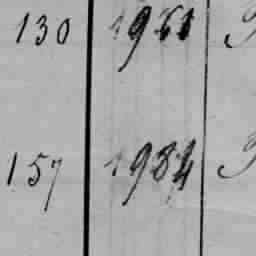 130 1961
157 1984